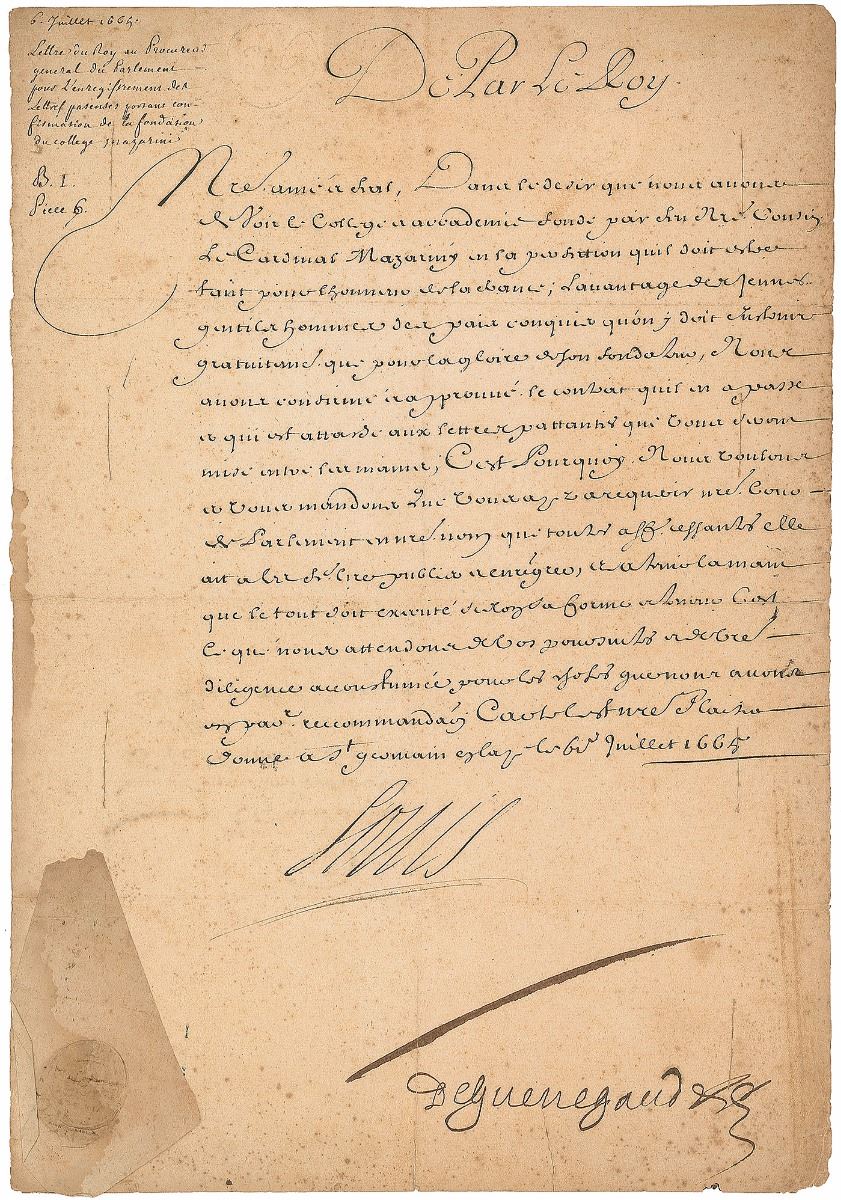 6. Juillet 1665.
Lettre du Roy au Procureur
general du Parlement
pour L'enregistrement des
Lettres patentes portant con-
firmation de la fondation
du college mazarini
B. 1.
Piece 6.
De Par Le Roy.
Nre. amé & feal, Dans le desir que nous auons
de Voir le College & accademie fondé par feu Nre. Cousin
Le Cardinal Mazariny en la perfection quil doit estre
tant pour lhonneur de la france, lauantage des Jeunes
gentilshommes des pais conquis quon y doit Instruire
gratuitemt. que pour la gloire de son fondateur, Nous
auons confirmé & approuué le contract quil en a passé
& qui est attaché aux lettres pattantes que vous seront
mise entre les mains, C'est Pourquoy Nous voulons
& vous mandons Que vous ayez a requerir nre. Cour
de Parlement en nre. nom que toutes aff. cessantes elle
ait a les fe. lire publier & enregrer, & a tenir la main
que le tout soit executé selon sa forme & teneur C'est
Ce que nous attendons de vos poursuites & de vre.
diligence accoustumée pour les choses que nous auons
en par. recommandaon Car tel est nre. Plaisir
Donné a St. germain en lay le 6e. Juillet 1665
Louis
De Guenegaud